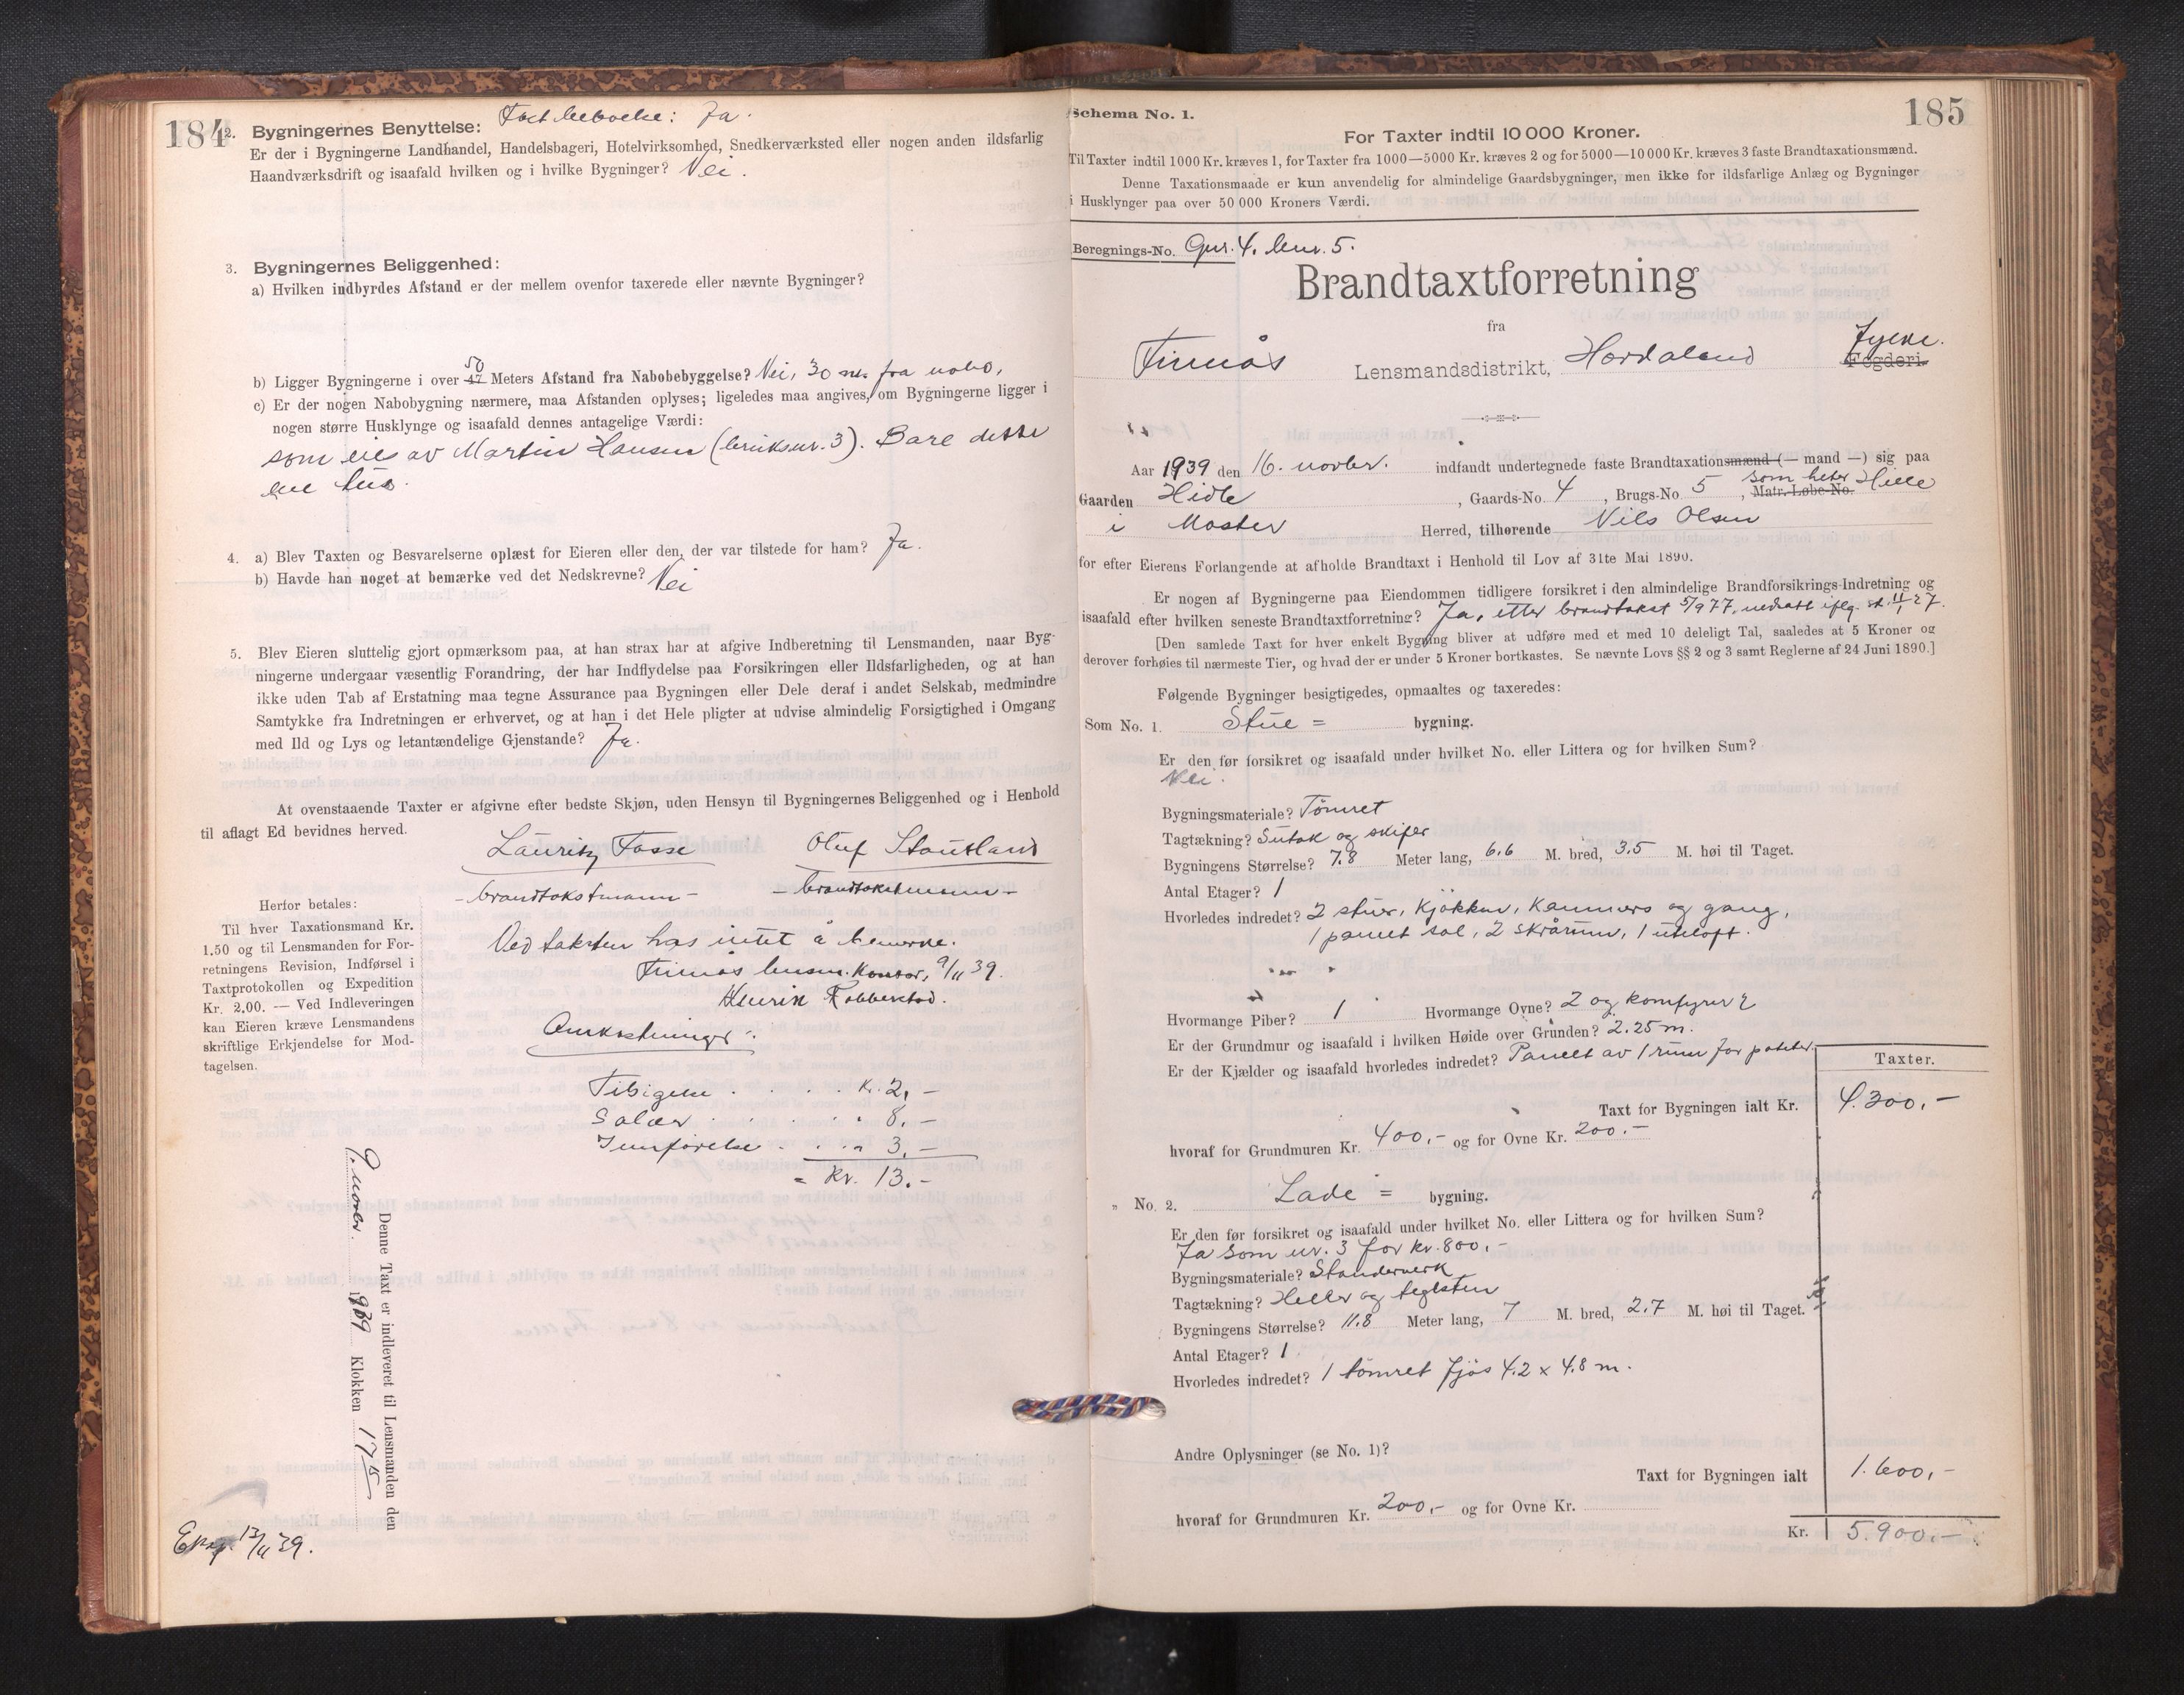 184
2. Bygningernes Benyttelse: Fast beboelse: Ja.
Er der i Bygningerne Landhandel, Handelsbageri, Hotelvirksomhed, Snedkerværksted eller nogen anden ildsfarlig
Haandværksdrift og isaafald hvilken og i hvilke Bygninger? Nei.
3. Bygningernes Beliggenhed:
a) Hvilken indbyrdes Afstand er der mellem ovenfor taxerede eller nævnte Bygninger?
50
b) Ligger Bygningerne i over 47 Meters Afstand fra Nabobebyggelse? Nei, 30 m. fra nabo,
c) Er der nogen Nabobygning nærmere, maa Afstanden oplyses; ligeledes maa angives, om Bygningerne ligger i
nogen større Husklynge og isaafald dennes antagelige Værdi:
som eies av Martin Hansen (bruksnr. 3). Bare dette
ene hus.
4. a) Blev Taxten og Besvarelserne oplæst for Eieren eller den, der var tilstede for ham? Ja.
b) Havde han noget at bemærke ved det Nedskrevne? Nei
5. Blev Eieren sluttelig gjort opmærksom paa, at han strax har at afgive Indberetning til Lensmanden, naar Byg-
ningerne undergaar væsentlig Forandring, der har Indflydelse paa Forsikringen eller Ildsfarligheden, og at han
ikke uden Tab af Erstatning maa tegne Assurance paa Bygningen eller Dele deraf i andet Selskab, medmindre
Samtykke fra Indretningen er erhvervet, og at han i det Hele pligter at udvise almindelig Forsigtighed i Omgang
med Ild og Lys og letantændelige Gjenstande? Ja.
At ovenstaaende Taxter er afgivne efter bedste Skjøn, uden Hensyn til Bygningernes Beliggenhed og i Henhold
til aflagt Ed bevidnes herved.
Lauritz Fosse Oluf Stautland
- brandtakstmann - - brandtakstmann -
Herfor betales:
Til hver Taxationsmand Kr.
1.50 og til Lensmanden for For-
retningens Revision, Indførsel i
Taxtprotokollen og Expedition
Kr. 2.00. — Ved Indleveringen
kan Eieren kræve Lensmandens
skriftlige Erkjendelse for Mod-
tagelsen.
Ved taksten has intet å bemerke.
Finnås lensm. kontor, 9/11 39.
Henrik Robberstad.
Omkostninger:
Tilsigelse . . . . . Kr. 2,-
Salær . . . . . " 8,-
Innførelse . . . " 3,-
= Kr. 13.-
Denne Taxt er indleveret til Lensmanden den
9. novbr. 1939 Klokken 17 15
Eksp. 13/11 39.
185
Schema No. 1.
For Taxter indtil 10 000 Kroner.
Til Taxter indtil 1000 Kr. kræves 1, for Taxter fra 1000—5000 Kr. kræves 2 og for 5000—10 000 Kr. kræves 3 faste Brandtaxationsmænd.
Denne Taxationsmaade er kun anvendelig for almindelige Gaardsbygninger, men ikke for ildsfarlige Anlæg og Bygninger
i Husklynger paa over 50 000 Kroners Værdi.
Beregnings-No. Gnr. 4. bnr. 5.
Brandtaxtforretning
fra
Finnås Lensmandsdistrikt, Hordaland Fogderi. fylke.
Aar 1939 den 16. novbr. indfandt undertegnede faste Brandtaxationsmænd (— mand —) sig paa
Gaarden Hidle, Gaards-No. 4, Brugs-No. 5, Matr.-Løbe-No. som heter Hille
i Moster Herred, tilhørende Nils Olsen
for efter Eierens Forlangende at afholde Brandtaxt i Henhold til Lov af 31te Mai 1890.
Er nogen af Bygningerne paa Eiendommen tidligere forsikret i den almindelige Brandforsikrings-Indretning og
isaafald efter hvilken seneste Brandtaxtforretning? Ja, etter brandtakst 5/9 77, nedsatt iflg.
[Den samlede Taxt for hver enkelt Bygning bliver at udføre med et med 10 deleligt Tal, saaledes at 5 Kroner og
derover forhøies til nærmeste Tier, og hvad der er under 5 Kroner bortkastes. Se nævnte Lovs §§ 2 og 3 samt Reglerne af 24 Juni 1890.]
Følgende Bygninger besigtigedes, opmaaltes og taxeredes:
Som No. 1. Stue = bygning.
Er den før forsikret og isaafald under hvilket No. eller Littera og for hvilken Sum?
Nei.
Bygningsmateriale? Tømret
Tagtækning? Sutak og skifer
Bygningens Størrelse? 7.8 Meter lang, 6.6 M. bred, 3.5 M. høi til Taget.
Antal Etager? 1
Hvorledes indredet? 2 stuer, kjøkken, kammers og gang,
1 panelt sal, 2 skårum, 1 uteloft.
Hvormange Piber? 1 Hvormange Ovne? 2 og komfyrer 2
Er der Grundmur og isaafald i hvilken Høide over Grunden? 2.25 m.
Er der Kjælder og isaafald hvorledes indredet? Panelt av 1 rum for poteter.
Taxter.
Taxt for Bygningen ialt Kr. 4.300,-
hvoraf for Grundmuren Kr. 400,- og for Ovne Kr. 200.-
" No. 2. Lade = bygning.
Er den før forsikret og isaafald under hvilket No. eller Littera og for hvilken Sum?
Ja som nr. 3 for kr. 800,-
Bygningsmateriale? Stenderverk
Tagtækning? Heller og teglsten
Bygningens Størrelse? 11.8 Meter lang, 7 M. bred, 2.7 M. høi til Taget.
Antal Etager? 1
Hvorledes indredet? 1 tømret fjøs 4.2 x 4.8 m.
Andre Oplysninger (se No. 1)?
Taxt for Bygningen ialt 1.600,-
hvoraf for Grundmuren Kr. 200,- og for Ovne Kr.
Kr. 5.900.-